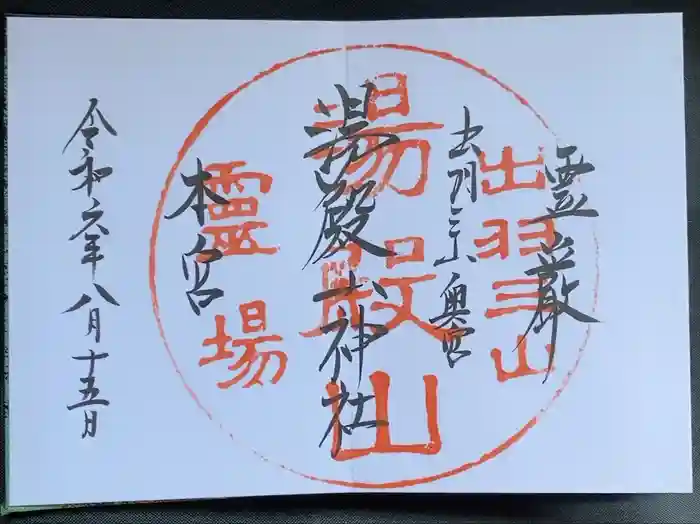 霊巌
出羽三山
出羽三山奥宮
湯殿山神社
湯殿山
本宮
霊場
令和六年八月十五日